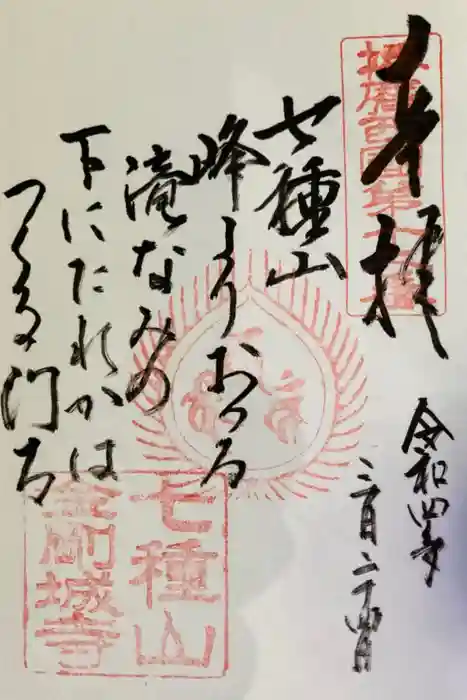 奉拝
播磨西国第十六番
令和四年
三月二十四日
七種山
峰よりおつる
滝なみの
下にたれかは
つくる門た
七種山
金剛城寺